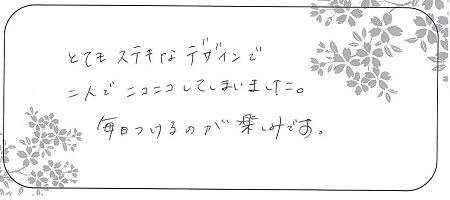 とてもステキなデザインで
二人でニコニコしてしまいました。
毎日つけるのが楽しみです。